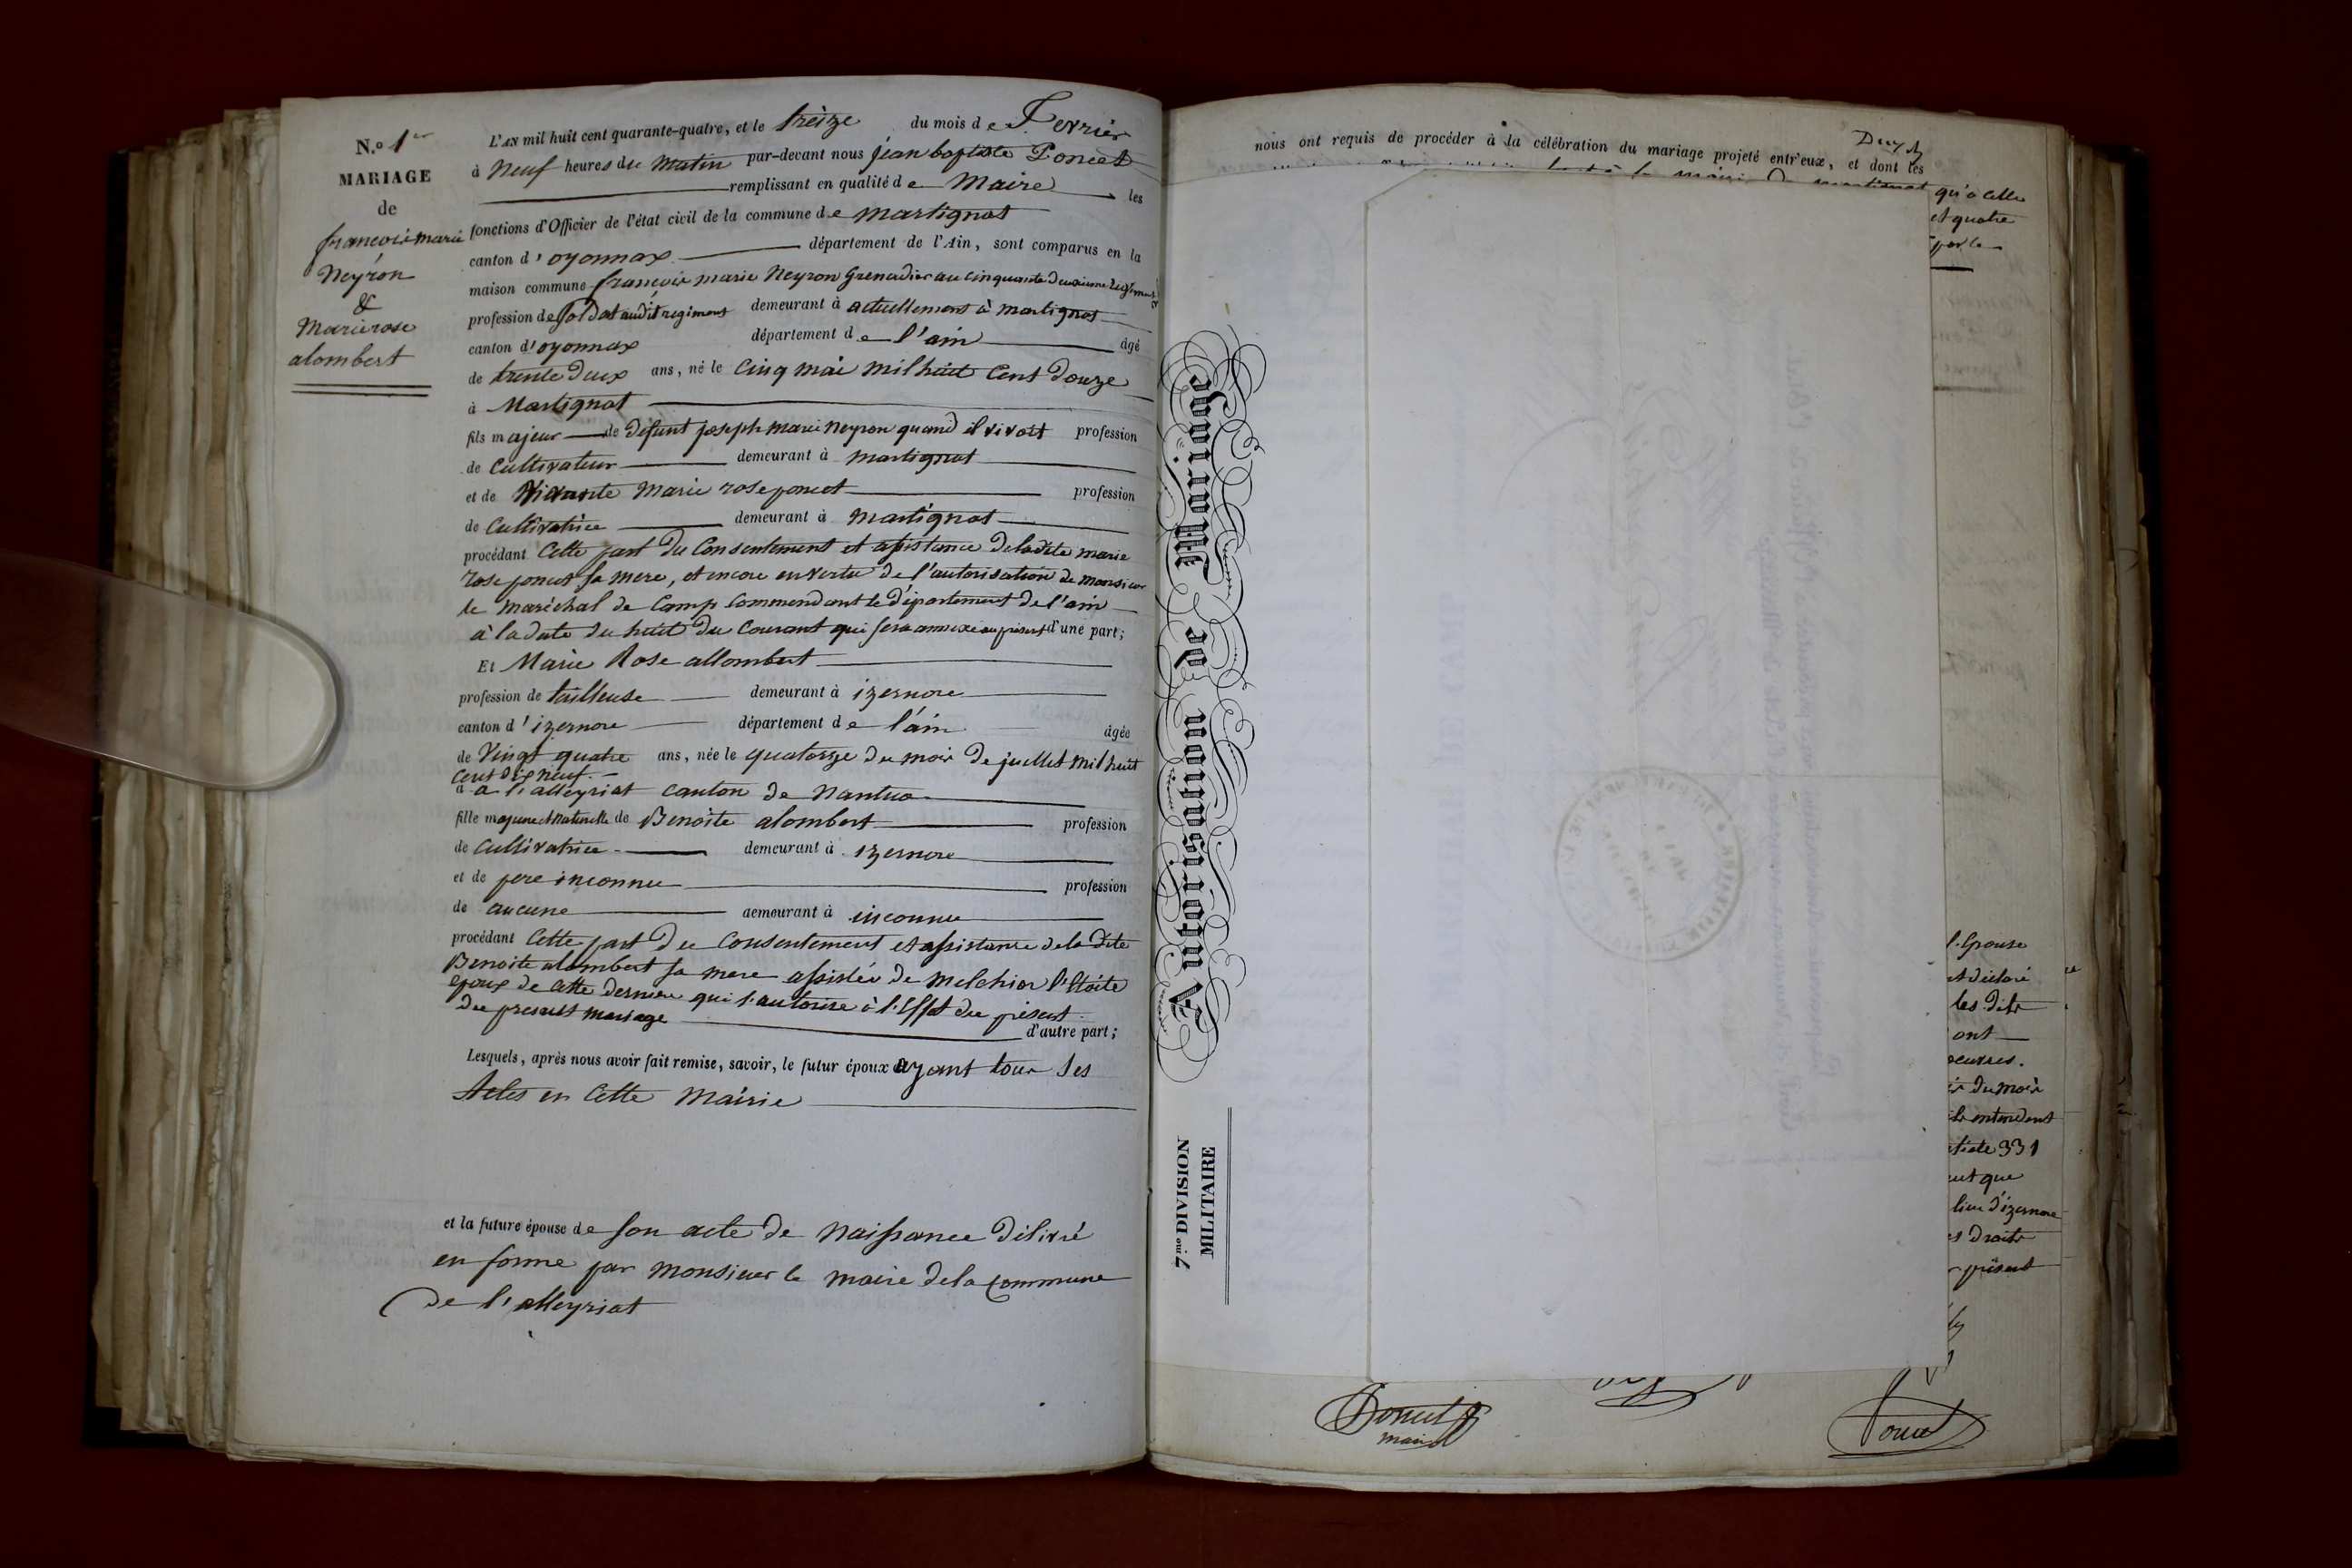 N.o 1er
MARIAGE
de
francois marie
Neyron
&
Marie rose
alombert
L'AN mil huit cent quarante-quatre, et le treize du mois de Fevrier
à Neuf heures du Matin par-devant nous jean baptiste Poncet
remplissant en qualité de Maire les
fonctions d'Officier de l'état civil de la commune de Martignat
canton d'oyonnax département de l'Ain, sont comparus en la
maison commune françois marie Neyron Grenadier au Cinquante Deuxieme Regiment
profession de Soldat audit regiment demeurant à actuellement à martignat
canton d'oyonnax département de l'ain âgé
de trente Deux ans, né le Cinq mai mil huit Cent Douze
à Martignat
fils majeur de Défunt joseph marie neyron quand il vivoit profession
de Cultivateur demeurant à Martignat
et de Vivante Marie rose poncet profession
de Cultivatrice demeurant à Martignat
procédant Cette part Du Consentement et assistance de ladite marie
rose poncet sa mere, et encore en vertu de l'autorisation de monsieur
le maréchal de Camp Commendant le Département de l'ain
à la date du huit du Courant qui sera annexé au présent d'une part;
Et Marie Rose allombert
profession de tailleuse demeurant à izernore
canton d'izernore département de l'ain âgée
de Vingt quatre ans, née le quatorze du mois De juillet mil huit
Cent Dix neuf.
à a l'alleyriat Canton de Nantua
fille majeure et naturelle de Benoite alombert profession
de Cultivatrice demeurant à izernore
et de pere inconnu profession
de aucune demeurant à inconnu
procédant Cette part Du Consentement et assistance de la dite
Benoite alombert sa mere assistée de Melchior
Epoux de Cette Derniere qui l'autorise à l'Effet du présent
du present mariage d'autre part;
Lesquels, après nous avoir fait remise, savoir, le futur époux ayant tous ses
Actes en Cette Mairie
et la future épouse de son acte de Naissance Délivré
en forme par Monsieur le maire de la Commune
De l'alleyriat
nous ont requis de procéder à la célébration du mariage projeté entr'eux, et dont les
qu'a Celle
et quatre
par le
Autorisation de Mariage
7.me DIVISION
MILITAIRE
l'Epouse
les Dits
ont
du mois
entendent
331
que
lieu d'izernore
Droits
présent
Poncet
maire
Poncet